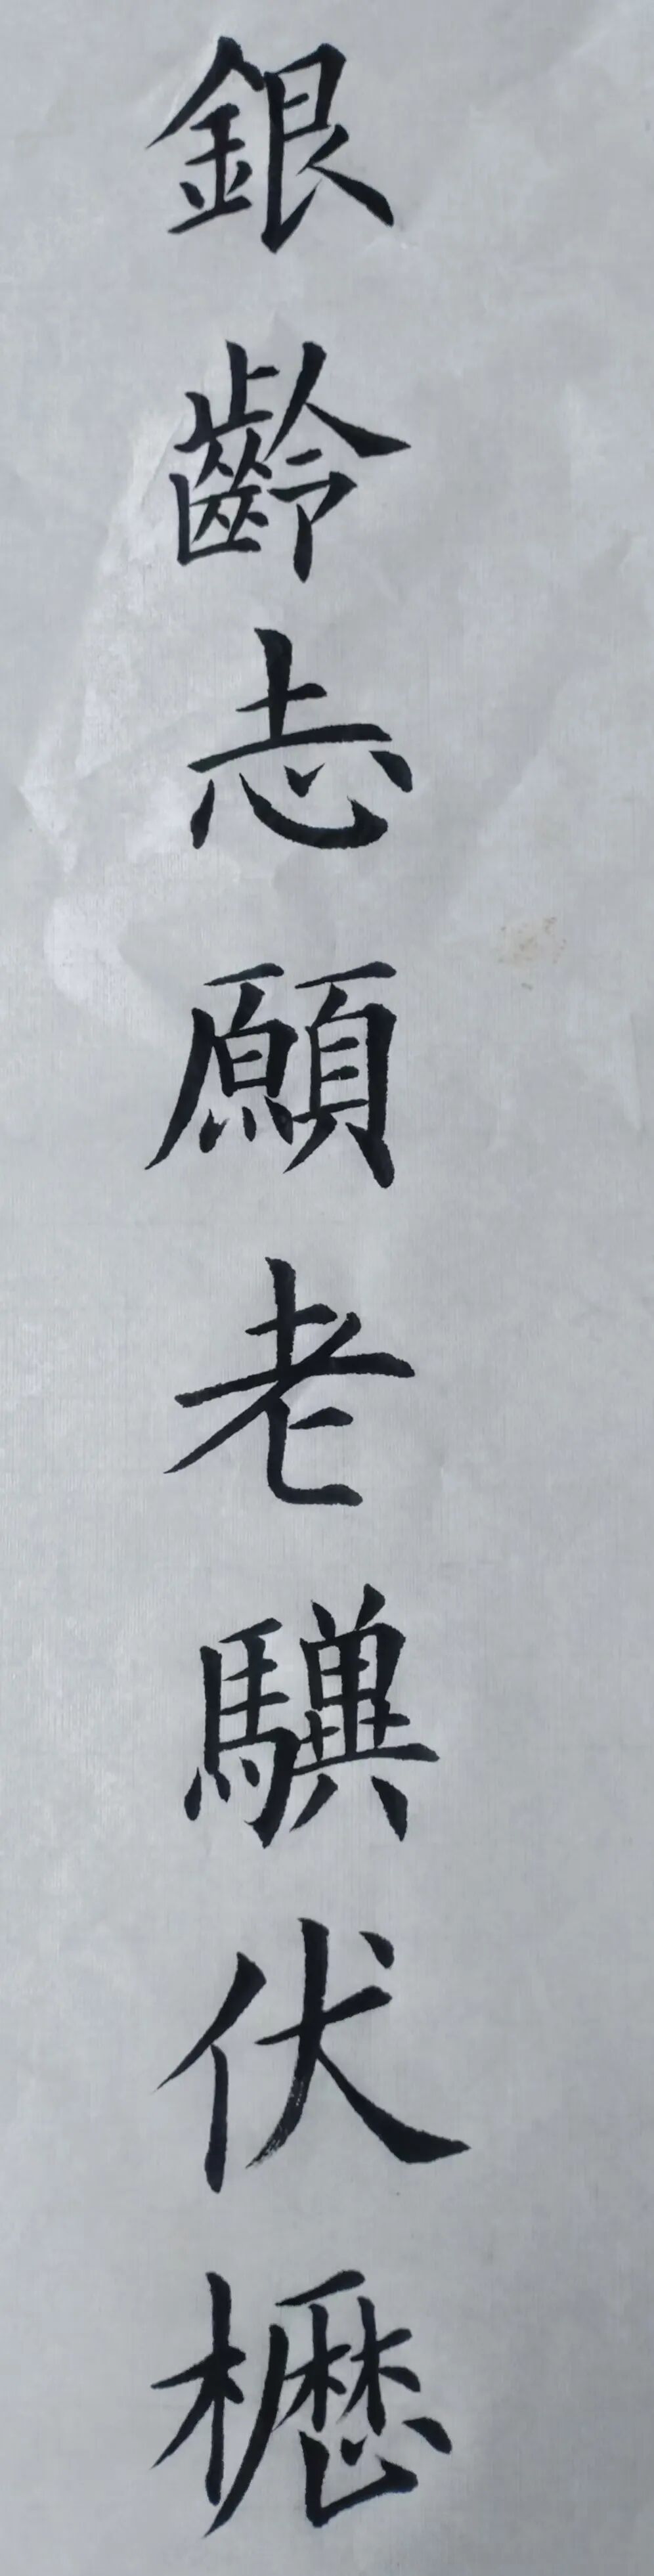 銀齡志願老驥伏櫪